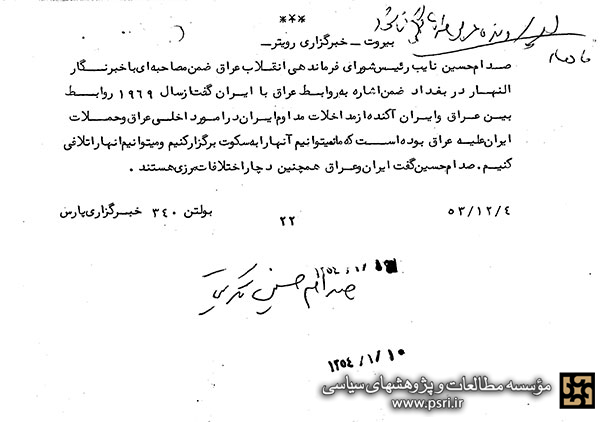 ***
بیروت ـ خبرگزاری رویتر ـ
صدام حسین نایب رئیس شورای فرماندهی انقلاب عراق ضمن مصاحبه ای با خبرنگار
النهار در بغداد ضمن اشاره به روابط عراق با ایران گفت از سال ۱۹۶۹ روابط
بین عراق و ایران آکنده از مداخلات مداوم ایران در امور داخلی عراق و حملات
ایران علیه عراق بوده است که ما نمیتوانیم آنها را به سکوت برگزار کنیم و میتوانیم انها را تلافی
کنیم . صدام حسین گفت ایران و عراق همچنین دچار اختلافات مرزی هستند .
۵۳/۱۲/۴
۲۲
بولتن ۳۴۰ خبرگزاری پارس
صدام حسین تکریتی
۱۳۵۴/۱/۱۰
مؤسسه مطالعات و پژوهشهای سیاسی
www.psri.ir